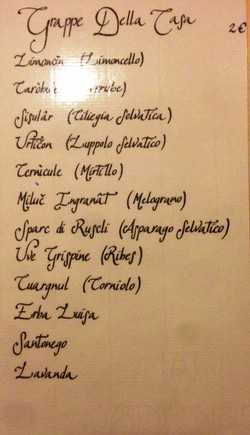 Grappe Della Casa
2€
Limoncin (Limoncello)
Sisulâr (Ciliegia Selvatica)
Urticon (Luppolo Selvatico)
Cernicule (Mirtillo)
Miluč Ingranât (Melograno)
Sparc di Ruscli (Asparago Selvatico)
Uve Grispine (Ribes)
Cuargnul (Corniolo)
Erba Luisa
Santonego
Lavanda